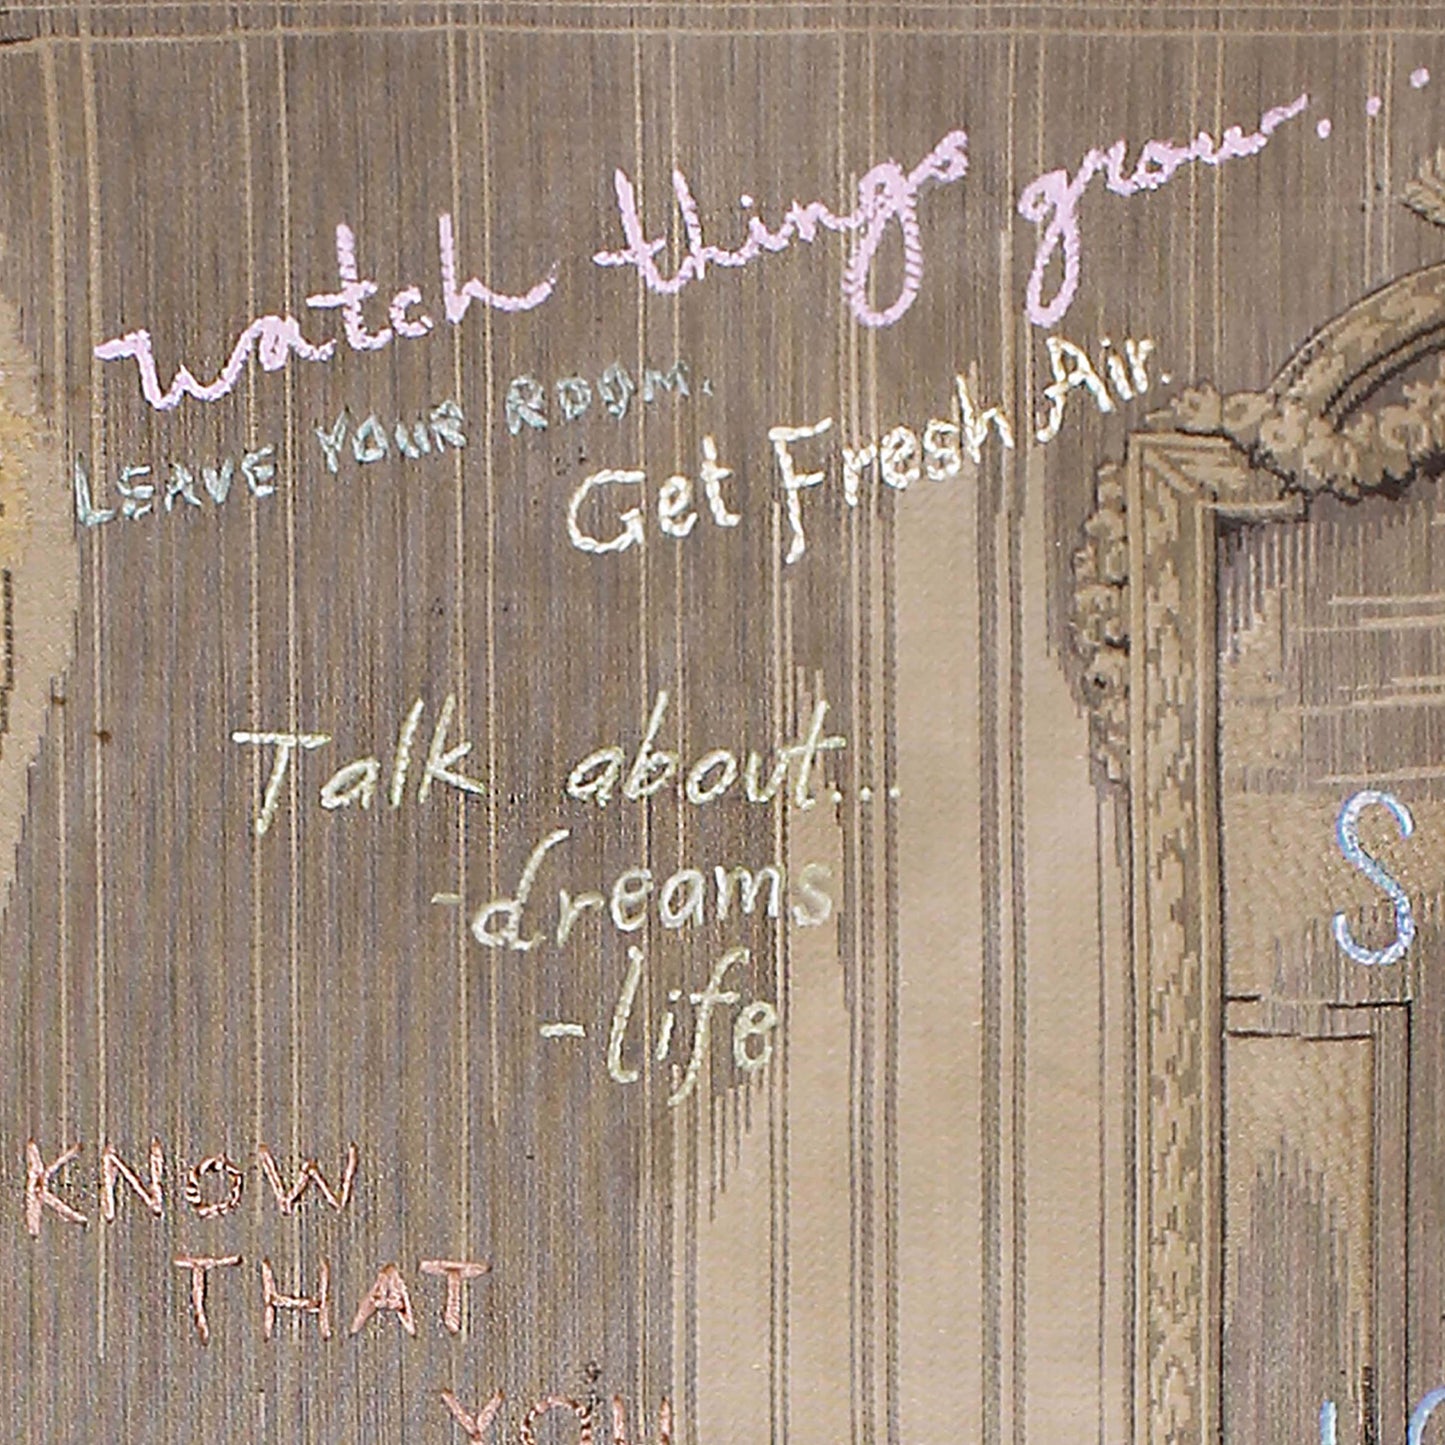 watch things grow...
LEAVE YOUR ROOM.
Get Fresh Air.
Talk about...
-dreams
-life
S
KNOW
THAT
YOU